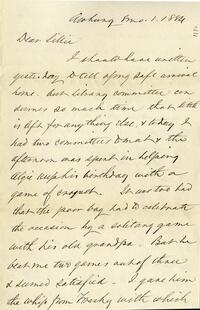 Roxbury 8mo. 1. 1884
Dear Lillie
I should have written
yesterday & tell of my safe arrival
home. but library committee con
sumes so much time that little
is left for anything else, & today I
had two committees to meet & the
afternoon was spent in helping
Algie keep his birthday with a
game of croquet. It was too bad
that the poor boy had to celebrate
the occasion by a solitary game
with his old grandpa. But he
beat me two games out of three
& seemed satisfied. I gave him
the whip from Freshy with which